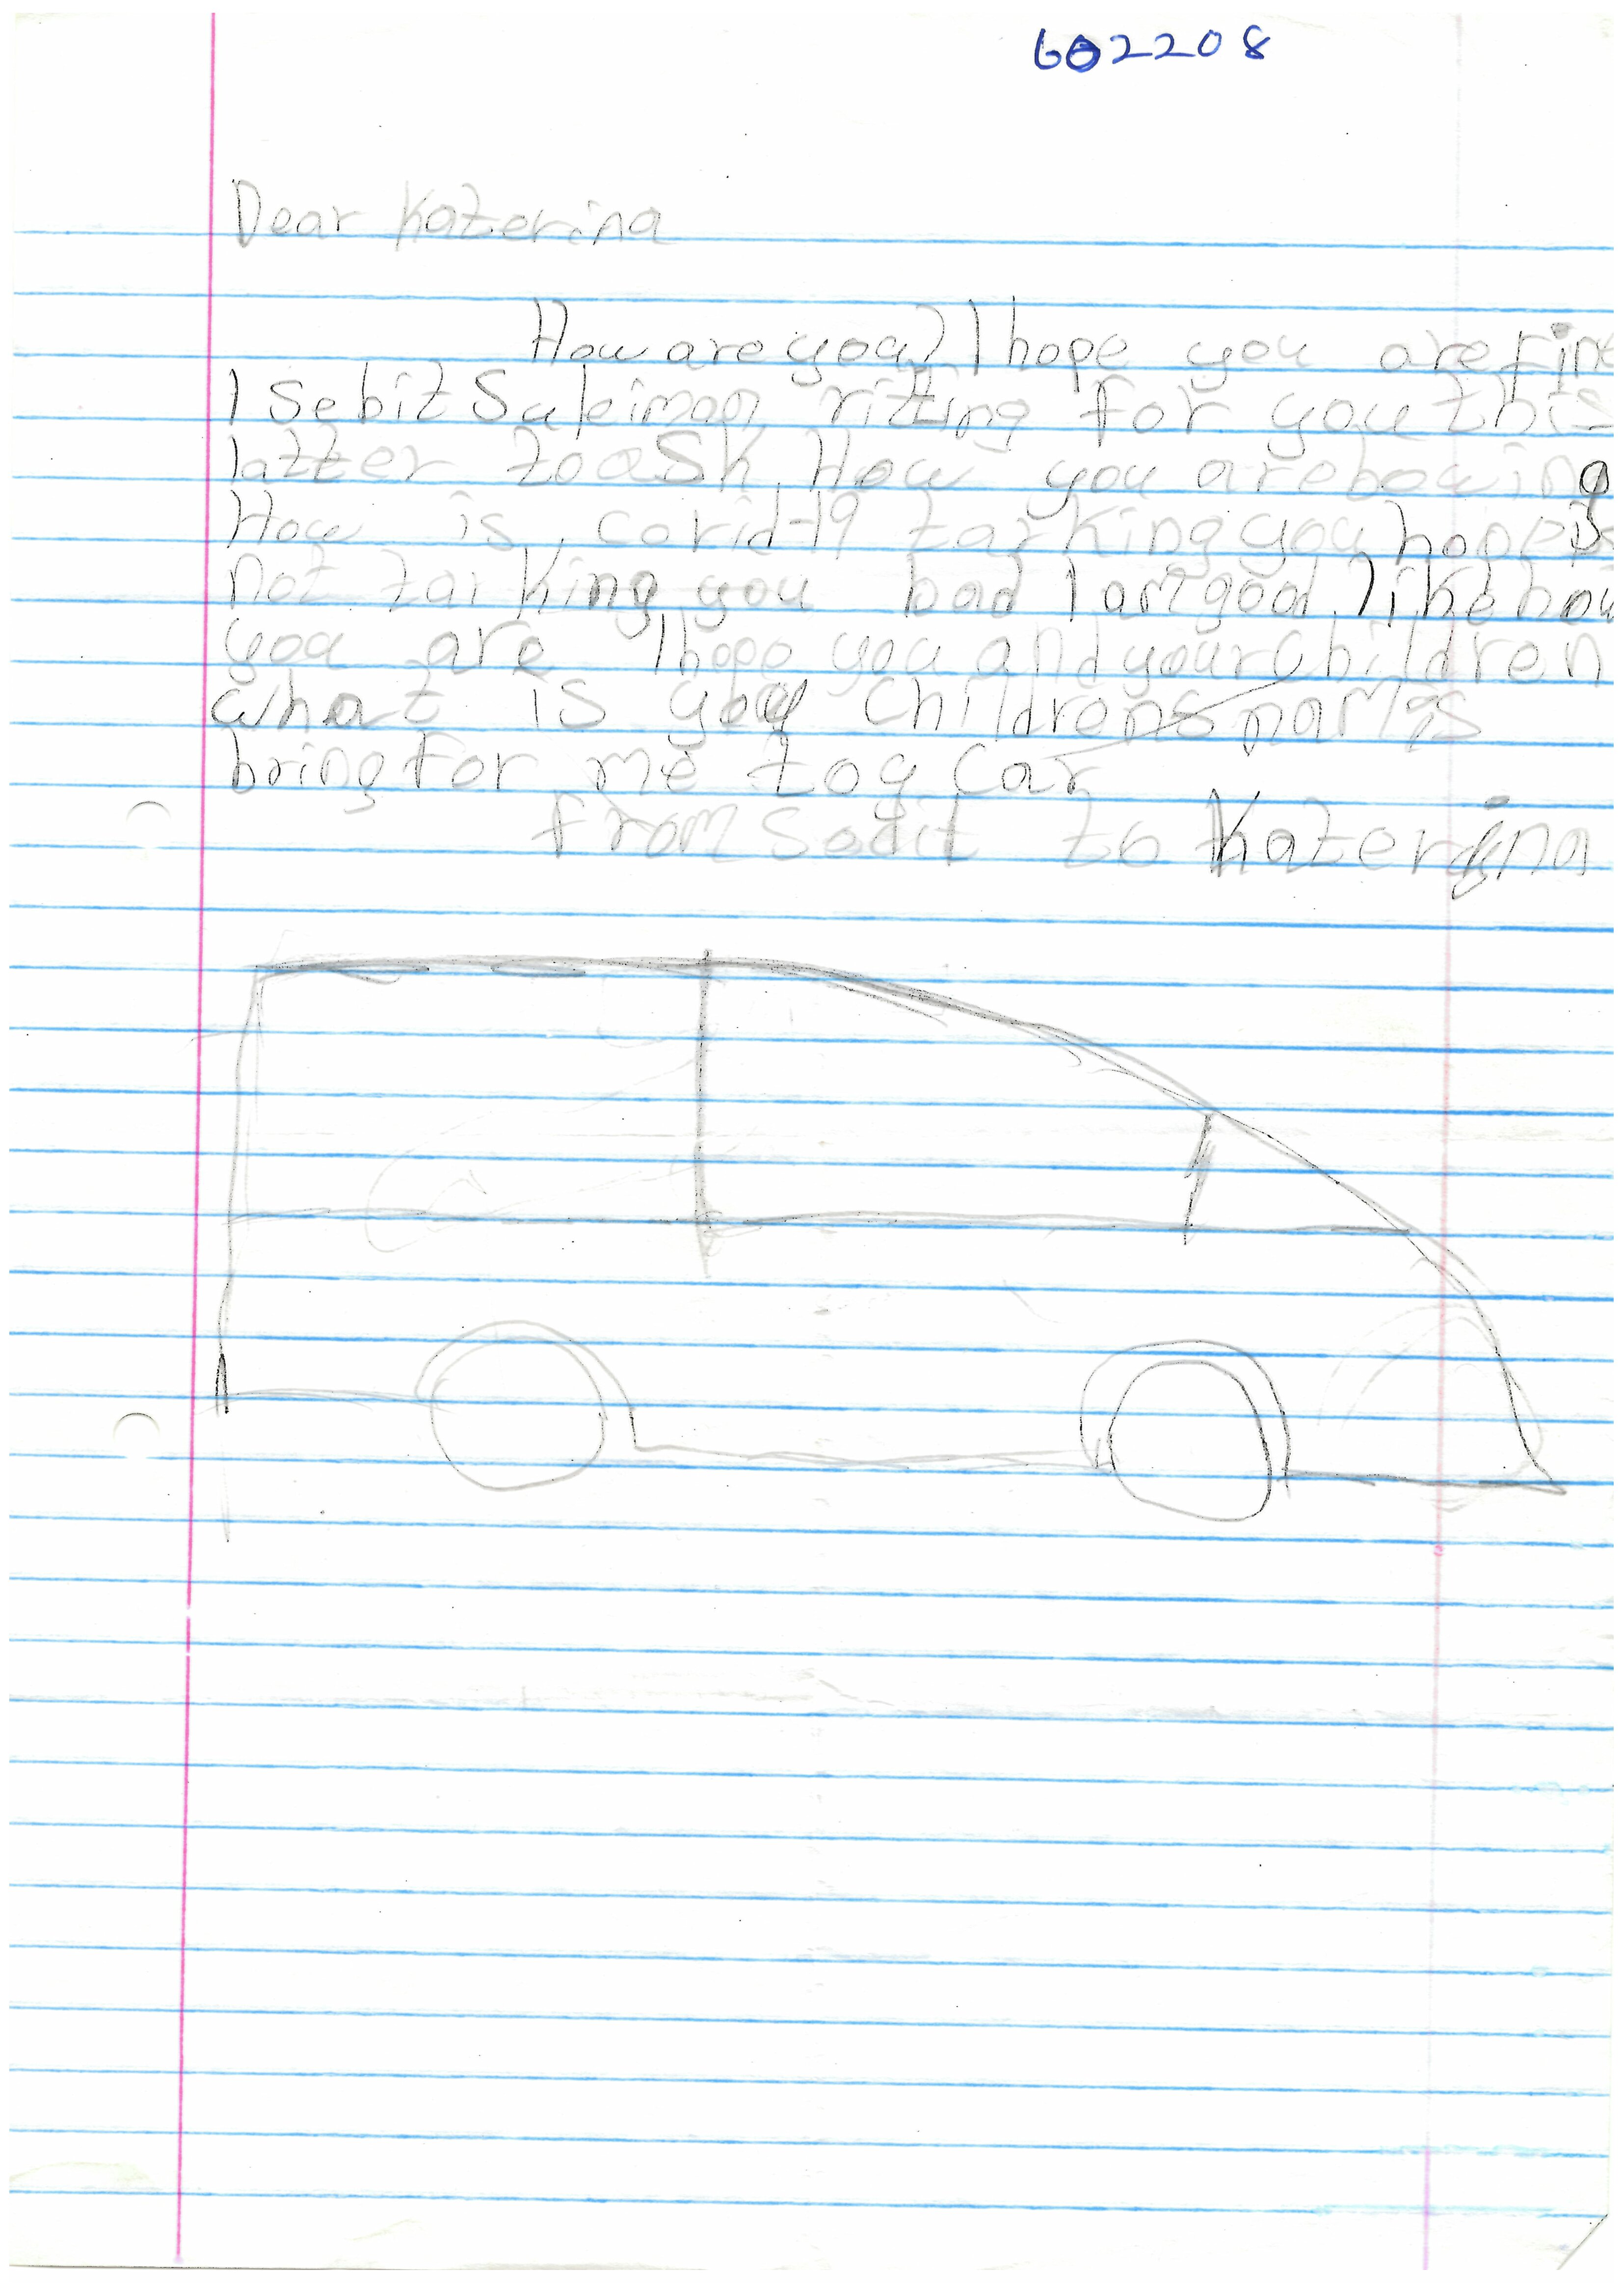 602208
Dear Katerina
How are you? I hope you are fine
I Sebit Suleiman ritting for you this
latter to ask How you are
How is covid-19 tarking you hope is
not tarking you bad I am good like how
you are I hope you and your children
what is your childrens names
bring for me toy car
from Sebit to Katerina